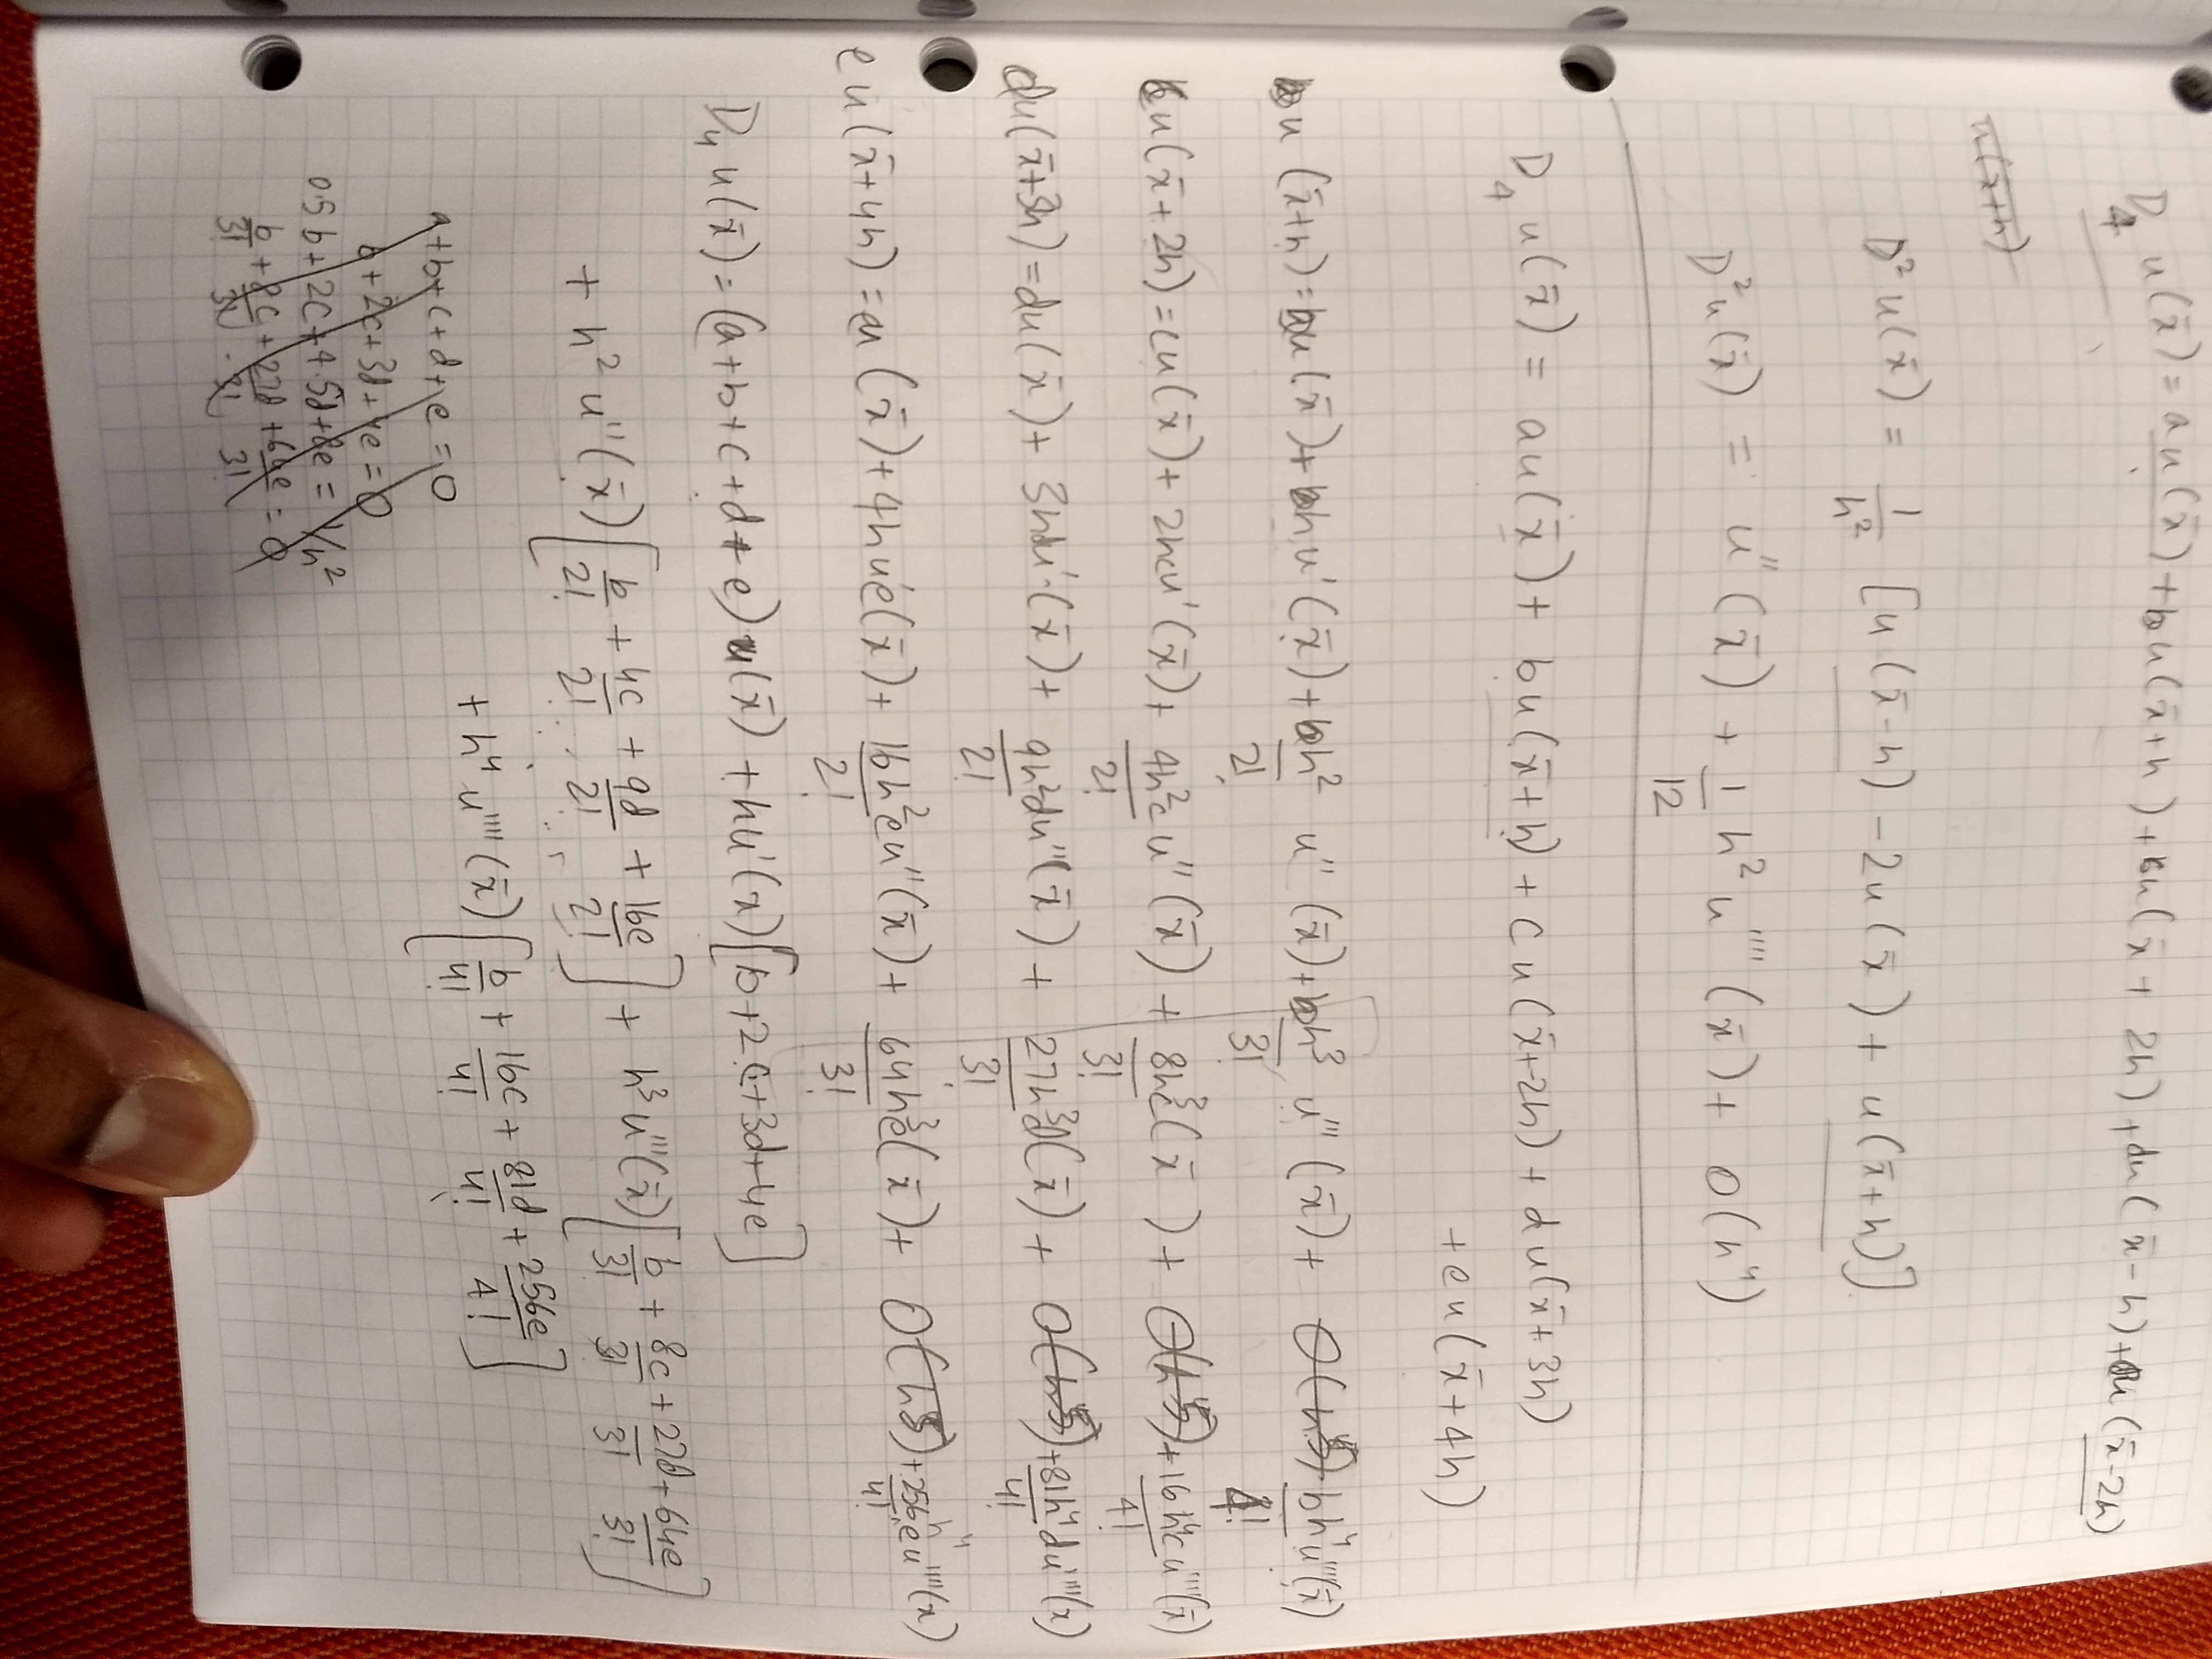 D₄ u(x̄) = au(x̄) + bu(x̄+h) + cu(x̄ + 2h) + du(x̄-h) + eu(x̄-2h)
u(x̄+h)
D² u(x̄) = 1/h² [u(x̄-h) - 2u(x̄) + u(x̄+h)]
D²u(x̄) = u''(x̄) + 1/12 h² u''''(x̄) + O(h⁴)
D₄ u(x̄) = au(x̄) + bu(x̄+h) + cu(x̄+2h) + du(x̄+3h)
+ eu(x̄+4h)
bu(x̄+h) = bu(x̄) + bhu'(x̄) + bh²/2! u''(x̄) + bh³/3! u'''(x̄) + O(h⁵) bh⁴/4! u''''(x̄)
cu(x̄+2h) = cu(x̄) + 2hcu'(x̄) + 4h²c/2! u''(x̄) + 8h³c/3! (x̄) + O(h⁵) + 16h⁴c/4! u''''(x̄)
du(x̄+3h) = du(x̄) + 3hdu'(x̄) + 9h²/2! du''(x̄) + 27h³/3! d(x̄) + O(h⁵) + 81h⁴/4! du''''(x)
eu(x̄+4h) = eu(x̄) + 4hu'e(x̄) + 16h²e/2! u''(x̄) + 64h³/3! e(x̄) + O(h⁵) + 256/4! h⁴eu''''(x)
D₄ u(x̄) = (a+b+c+d+e)u(x̄) + hu'(x)[b+2c+3d+4e]
+ h² u''(x̄)[b/2! + 4c/2! + 9d/2! + 16e/2!] + h³u'''(x̄)[b/3! + 8c/3! + 27d/3! + 64e/3!]
+ h⁴ u''''(x̄)[b/4! + 16c/4! + 81d/4! + 256e/4!]
a+b+c+d+e = 0
b+2c+3d+4e = 0
0.5b+2c+4.5d+8e = 1/h²
b/3! + 8c/3! + 27d/3! + 64e/3! = 0